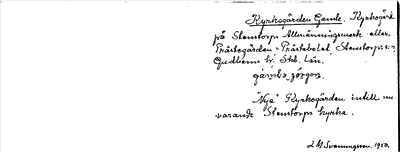 Kyrkogården Gamla. Kyrkogård
på Stenstorps Allmänningsmark eller
Prästegården - Prästebolet, Stenstorps sn,
Gudhems hd. Skb. län.
"Nya" Kyrkogården intill nu-
varande Stenstorps kyrka.
L M Svenungsson. 1950.